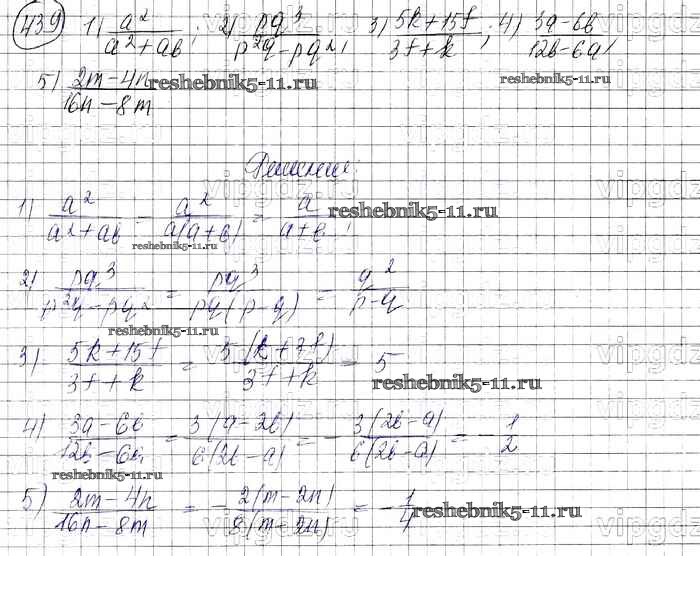 439 1) a²/(a²+ab); 2) pq³/(p²q-pq²); 3) (5k+15f)/(3f+k); 4) (3a-6b)/(12b-6a);
5) (2m-4n)/(16n-8m) reshebnik5-11.ru reshebnik5-11.ru
Решение:
1) a²/(a²+ab) = a²/(a(a+b)) = a/(a+b); reshebnik5-11.ru
reshebnik5-11.ru
2) pq³/(p²q-pq²) = pq³/(pq(p-q)) = q²/(p-q)
reshebnik5-11.ru
3) (5k+15f)/(3f+k) = 5(k+3f)/(3f+k) = 5 reshebnik5-11.ru
4) (3a-6b)/(12b-6a) = 3(a-2b)/(6(2b-a)) = -3(2b-a)/(6(2b-a)) = -1/2
reshebnik5-11.ru
5) (2m-4n)/(16n-8m) = -2(m-2n)/(8(m-2n)) = -1/4 reshebnik5-11.ru
vipgdz